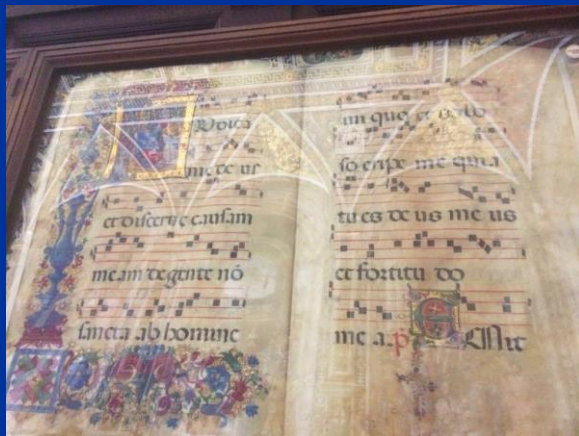 Iudica
me de us
et discerne causam
meam de gente nō
sancta ab homine
ini que et dolo
so eripe me quia
tu es de us me us
et fortitu do
me a. p Emit